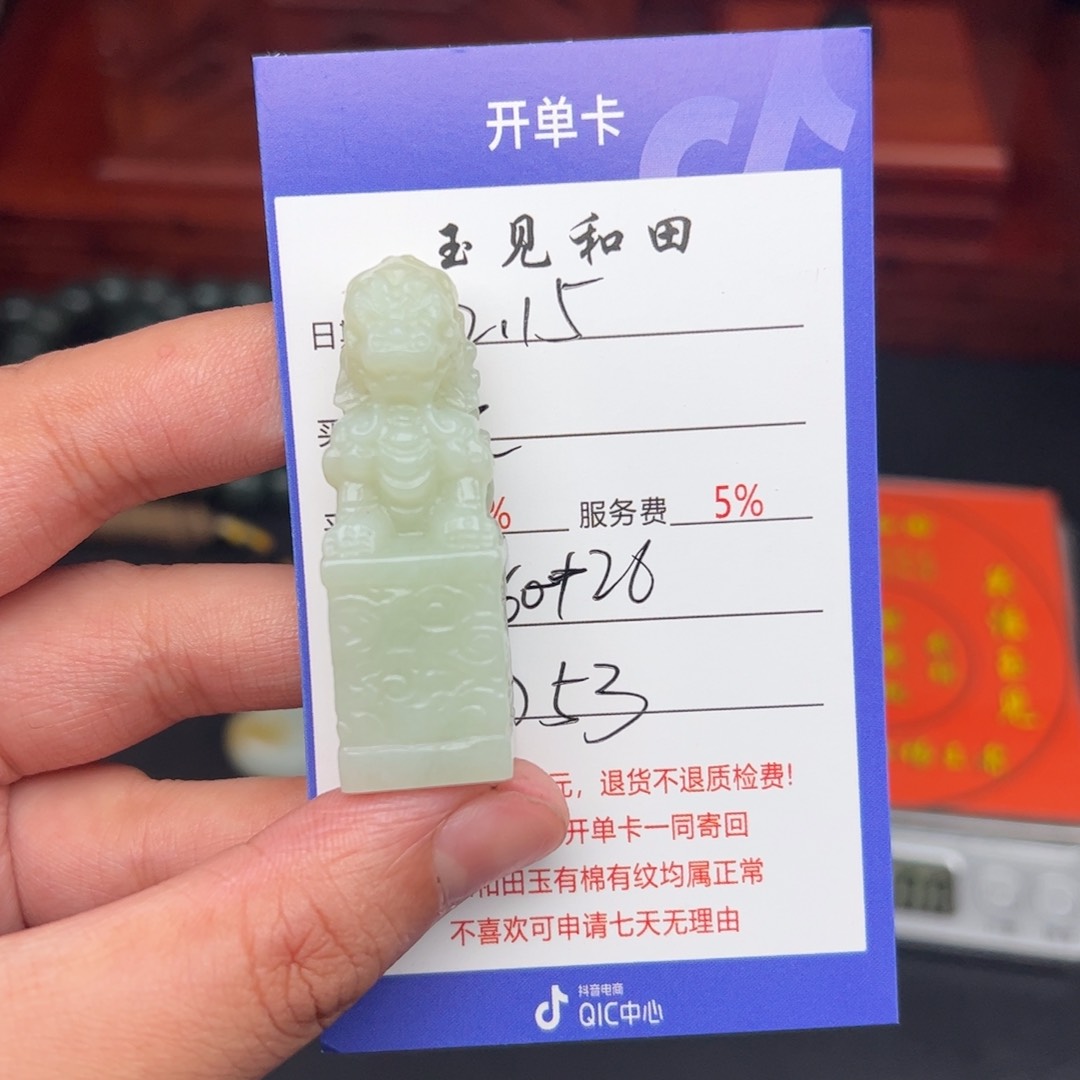 开单卡
玉见和田
日 2.15
买
% 服务费 5%
60+26
53
元，退货不退质检费！
开单卡一同寄回
和田玉有棉有纹均属正常
不喜欢可申请七天无理由
抖音电商
QIC中心